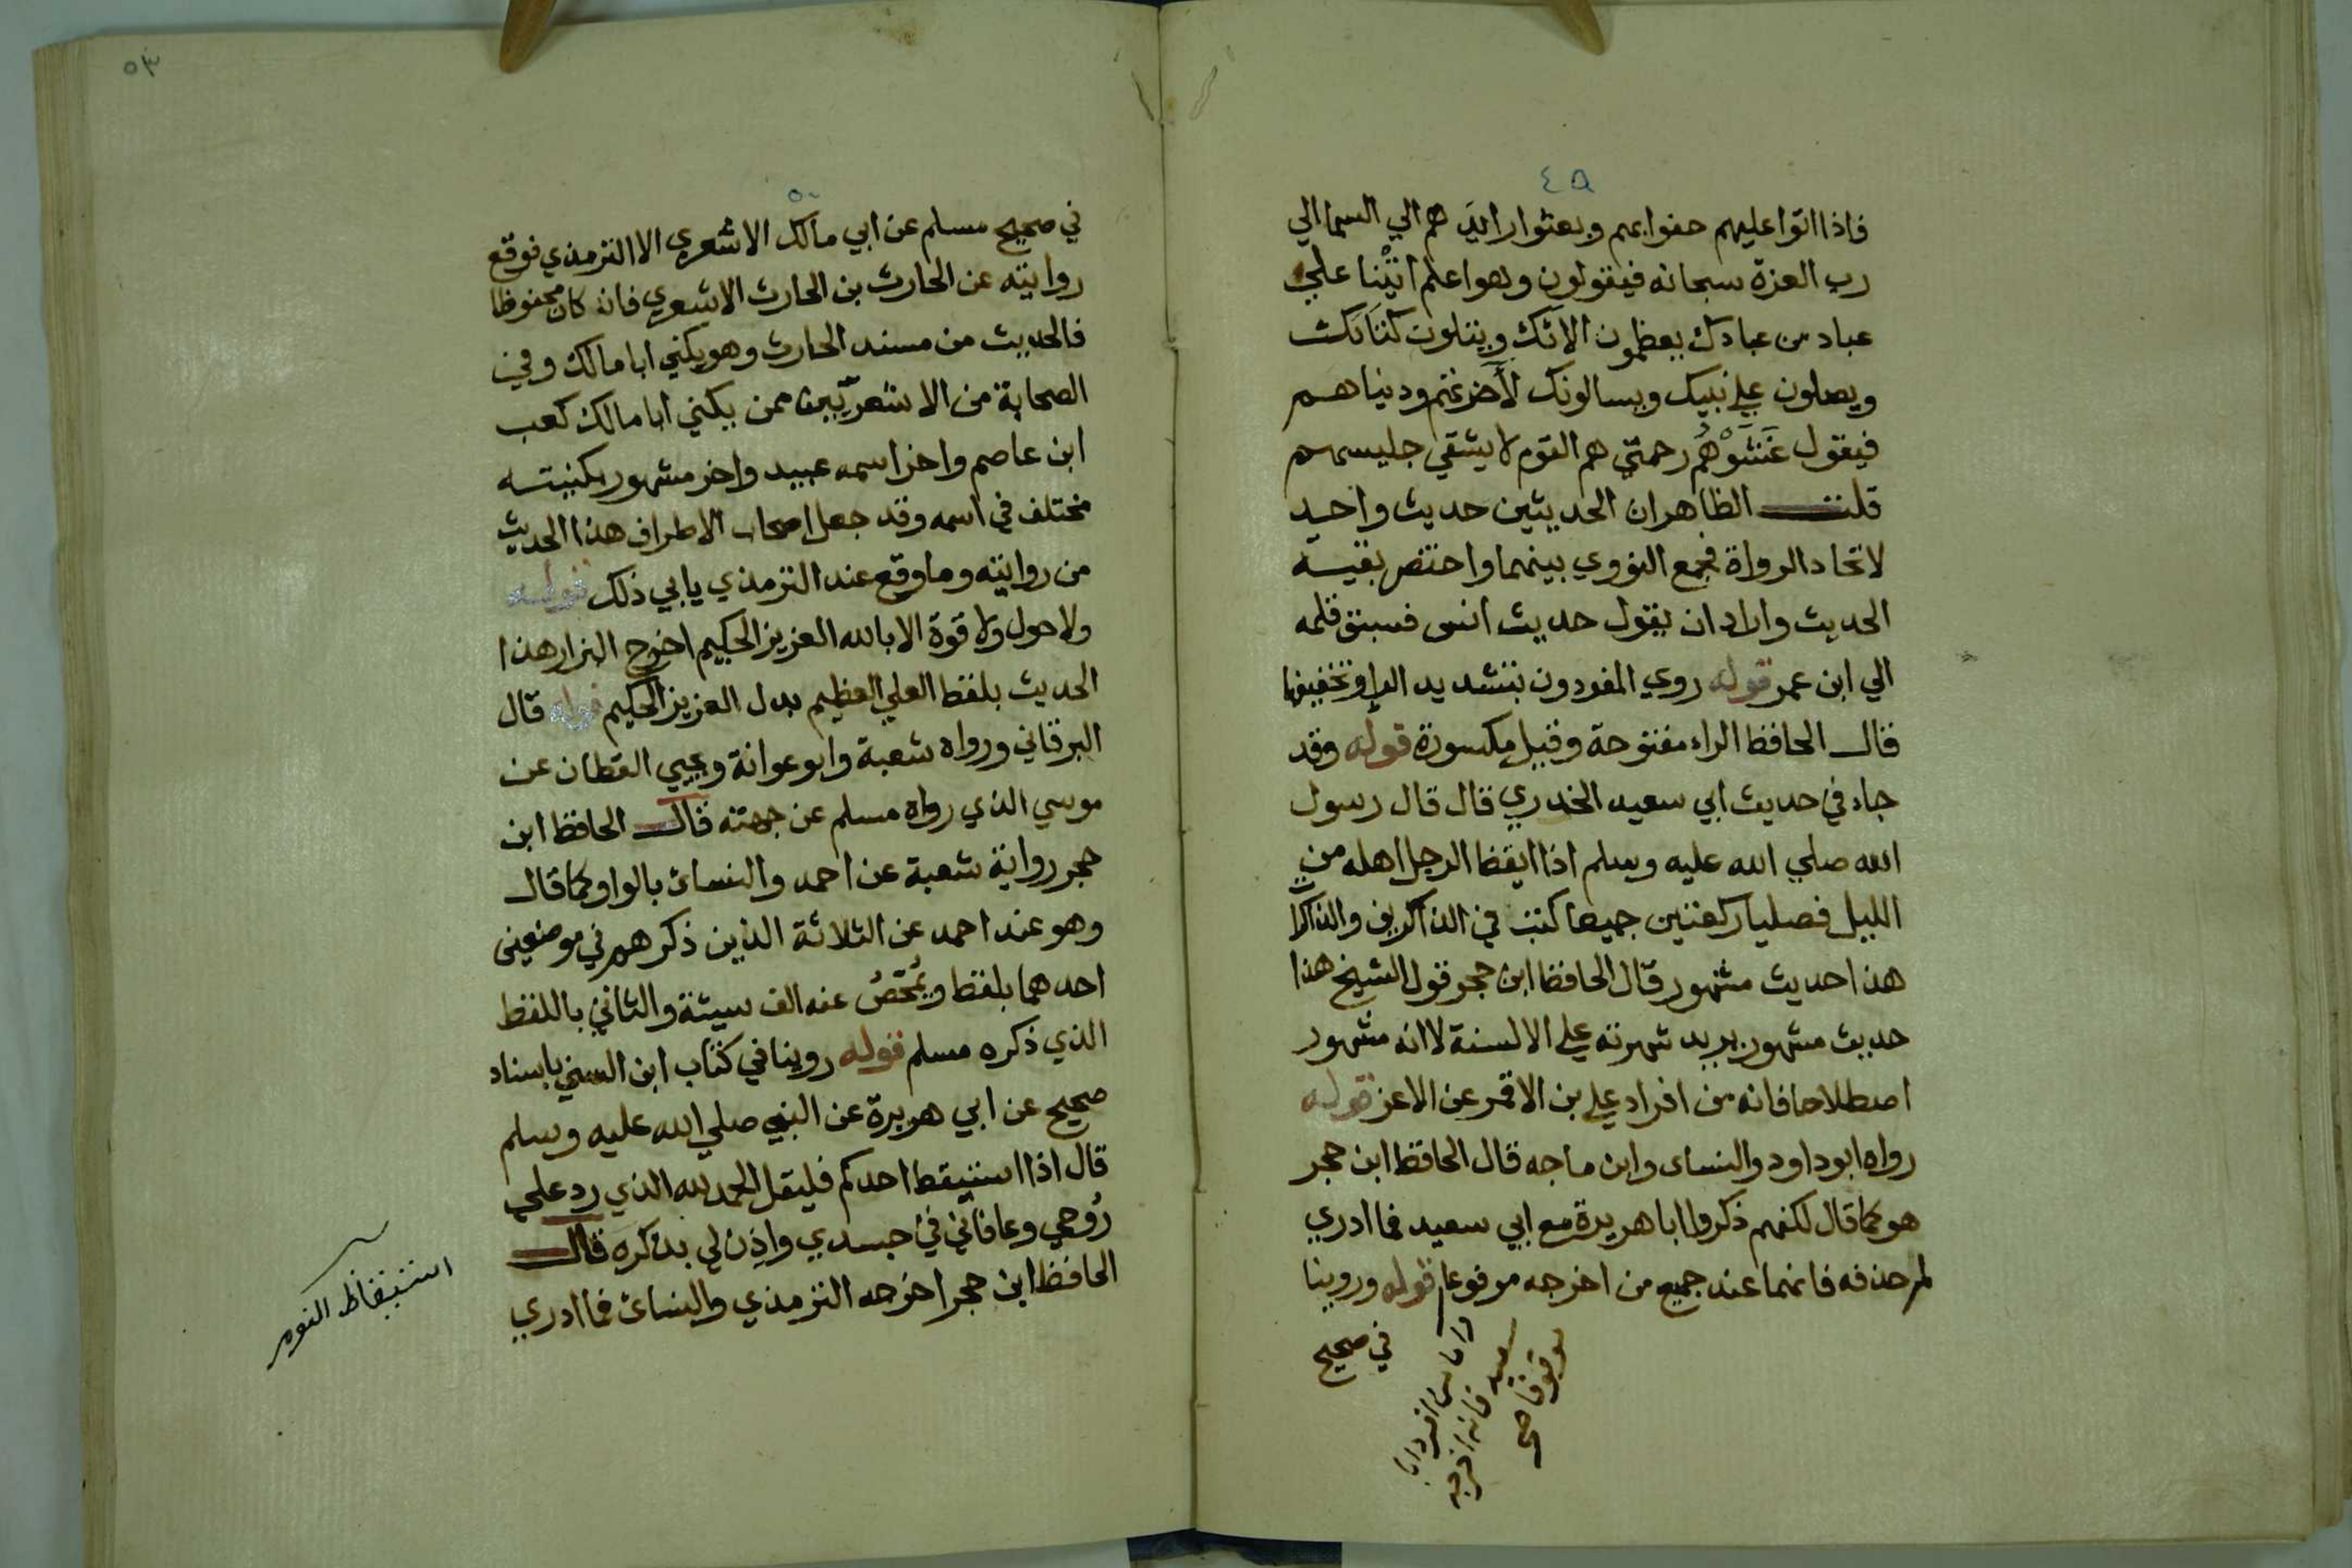 ٤٩
فاذا اتوا عليهم حفوا بهم وبعثوا رايدهم الي السما الي
رب العزة سبحانه فيقولون وهو اعلم اتينا علي
عباد من عبادك يعظمون الآئك ويتلون كتابك
ويصلون علي نبيك ويسالونك لآخرتهم ودنياهم
فيقول غشوهم رحمتي هم القوم لا يشقي جليسهم
قلت الظاهر ان الحديثين حديث واحد
لاتحاد الرواة فجمع النووي بينهما واختصر بقيته
الحديث واراد ان يقول حديث انس فسبق قلمه
الي ابن عمر قوله روي المفردون بتشديد الراء وتخفيفها
قال الحافظ الراء مفتوحة وقيل مكسورة قوله وقد
جاء في حديث ابي سعيد الخدري قال قال رسول
الله صلي الله عليه وسلم اذا ايقظ الرجل اهله من
الليل فصليا ركعتين جميعا كتب في الذاكرين والذاكرات
هذا حديث مشهور قال الحافظ ابن حجر قول الشيخ هذا
حديث مشهور يريد شهرته علي الالسنة لا انه مشهور
اصطلاحا فانه من افراد علي بن الاقمر عن الاعز قوله
رواه ابو داود والنساى وابن ماجه قال الحافظ ابن حجر
هو كما قال لكنهم ذكروا ابا هريرة مع ابي سعيد فما ادري
لم حذفه فانهما عند جميع من اخرجه مرفوعا قوله وروينا
في صحيح
واما من افرد ابا
سعيد فانه اخرجه
موقوفا صح
٥٣
٥٠
في صحيح مسلم عن ابي مالك الاشعري الا الترمذي فوقع
روايته عن الحارث بن الحارث الاشعري فان كان محفوظا
فالحديث من مسند الحارث وهو يكني ابا مالك وفي
الصحابة من الاشعريين ممن يكني ابا مالك كعب
ابن عاصم واخر اسمه عبيد واخر مشهور بكنيته
مختلف في اسمه وقد جعل اصحاب الاطراف هذا الحديث
من روايته وما وقع عند الترمذي يابي ذلك قوله
ولا حول ولا قوة الا بالله العزيز الحكيم اخرج البزار هذا
الحديث بلفظ العلي العظيم بدل العزيز الحكيم قوله قال
البرقاني ورواه شعبة وابو عوانة ويحيي القطان عن
موسي الذي رواه مسلم عن جهته قال الحافظ ابن
حجر رواية شعبة عن احمد والنسائ بالواو كما قال
وهو عند احمد عن الثلاثة الذين ذكرهم في موضعين
احدهما بلفظ ويُمحّصُ عنه الف سيئة والثاني باللفظ
الذي ذكره مسلم قوله روينا في كتاب ابن السني باسناد
صحيح عن ابي هريرة عن النبي صلي الله عليه وسلم
قال اذا استيقظ احدكم فليقل الحمد لله الذي رد علي
رُوحي وعافاني في جسدي واذِن لي بذكره قال
الحافظ ابن حجر اخرجه الترمذي والنسائ فما ادري
استيقاظ النوم